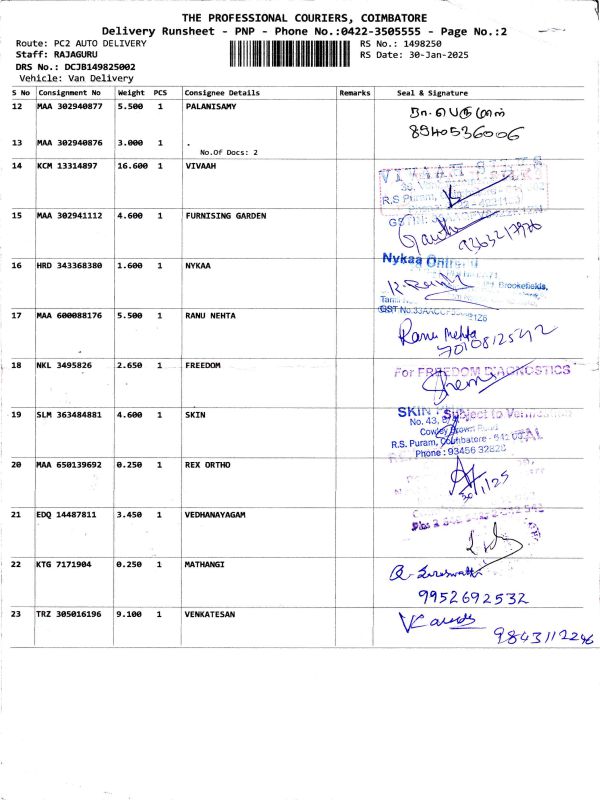 THE PROFESSIONAL COURIERS, COIMBATORE
Delivery Runsheet - PNP - Phone No.:0422-3505555 - Page No.:2
Route: PC2 AUTO DELIVERY RS No.: 1498250
Staff: RAJAGURU RS Date: 30-Jan-2025
DRS No.: DCJB149825002
Vehicle: Van Delivery
S No Consignment No Weight PCS Consignee Details Remarks Seal & Signature
12 MAA 302940877 5.500 1 PALANISAMY
8940536006
13 MAA 302940876 3.000 1 .
No.Of Docs: 2
14 KCM 13314897 16.600 1 VIVAAH VIVAAH SILKS
R.S Puram,
15 MAA 302941112 4.600 1 FURNISING GARDEN
16 HRD 343368380 1.600 1 NYKAA Nykaa
Brookefields,
GST No.33AACCF
17 MAA 600088176 5.500 1 RANU NEHTA Ranu Mehta
7010812542
18 NKL 3495826 2.650 1 FREEDOM For FREEDOM DIAGNOSTICS
19 SLM 363484881 4.600 1 SKIN SKIN Subject to Verification
No. 43,
Cowley Brown Road
R.S. Puram, Coimbatore - 641 00
Phone : 93456 32828
20 MAA 650139692 0.250 1 REX ORTHO
30/1/25
21 EDQ 14487811 3.450 1 VEDHANAYAGAM
22 KTG 7171904 0.250 1 MATHANGI
9952692532
23 TRZ 305016196 9.100 1 VENKATESAN
9843112246